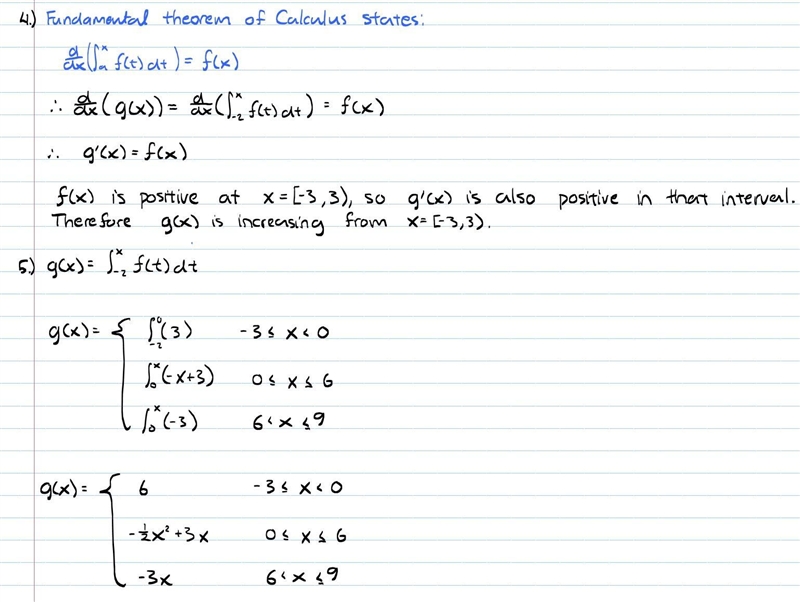 4.) Fundamental theorem of Calculus states:
d/dx(∫ₐˣ f(t) dt) = f(x)
∴ d/dx(g(x)) = d/dx(∫₋₂ˣ f(t) dt) = f(x)
∴ g'(x) = f(x)
f(x) is positive at x = [-3, 3), so g'(x) is also positive in that interval.
Therefore g(x) is increasing from x = [-3, 3).
5.) g(x) = ∫₋₂ˣ f(t) dt
g(x) = {
∫₋₂⁰ (3) -3 ≤ x < 0
∫₀ˣ (-x+3) 0 ≤ x ≤ 6
∫₀ˣ (-3) 6 < x ≤ 9
g(x) = {
6 -3 ≤ x < 0
-½x² + 3x 0 ≤ x ≤ 6
-3x 6 < x ≤ 9